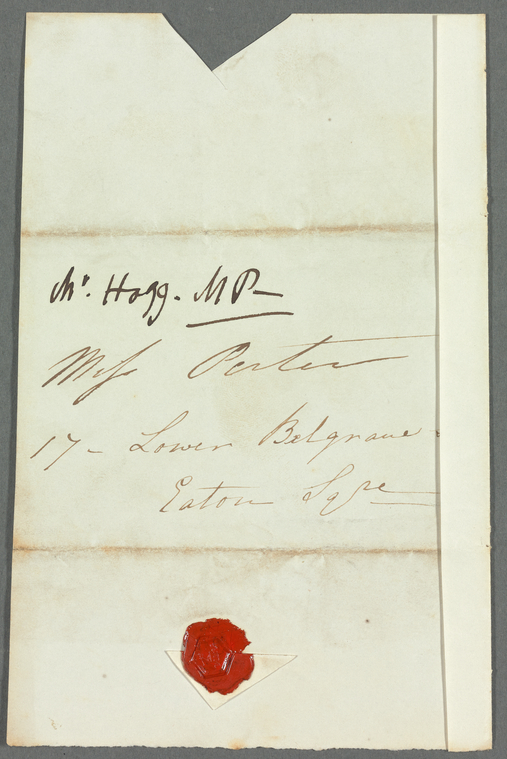 Mr. Hogg. MP-
Miss Porter
17 - Lower Belgrave -
Eaton Sqre